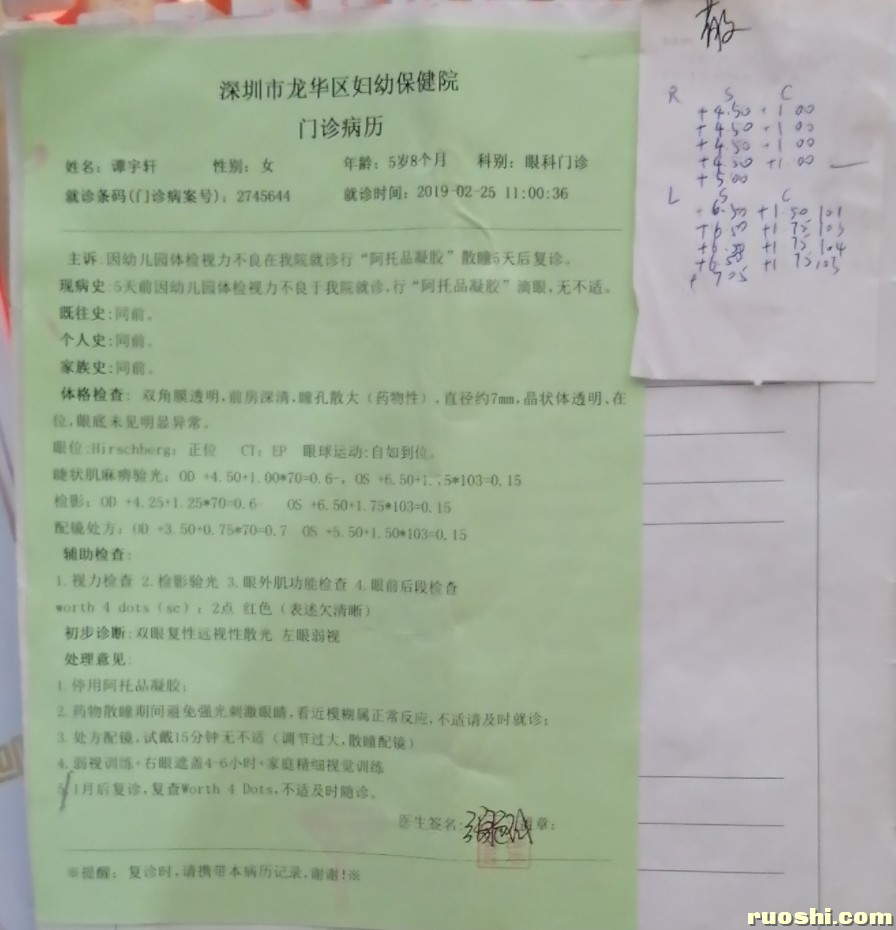 深圳市龙华区妇幼保健院
门诊病历
姓名：谭宇轩 性别：女 年龄：5岁8个月 科别：眼科门诊
就诊条码(门诊病案号)：2745644 就诊时间：2019-02-25 11:00:36
主诉:因幼儿园体检视力不良在我院就诊行“阿托品凝胶”散瞳5天后复诊。
现病史:5天前因幼儿园体检视力不良于我院就诊,行“阿托品凝胶”滴眼,无不适。
既往史:同前。
个人史:同前。
家族史:同前。
体格检查: 双角膜透明,前房深清,瞳孔散大（药物性）,直径约7mm,晶状体透明、在
位,眼底未见明显异常。
眼位:Hirschberg: 正位 CT: EP 眼球运动:自如到位。
睫状肌麻痹验光: OD +4.50+1.00*70=0.6-, OS +6.50+1.75*103=0.15
检影: OD +4.25+1.25*70=0.6- OS +6.50+1.75*103=0.15
配镜处方: OD +3.50+0.75*70=0.7 OS +5.50+1.50*103=0.15
辅助检查:
1.视力检查 2.检影验光 3.眼外肌功能检查 4.眼前后段检查
worth 4 dots（sc）: 2点 红色（表述欠清晰）
初步诊断:双眼复性远视性散光 左眼弱视
处理意见:
1.停用阿托品凝胶;
2.药物散瞳期间避免强光刺激眼睛,看近模糊属正常反应,不适请及时就诊;
3.处方配镜,试戴15分钟无不适（调节过大,散瞳配镜）
4.弱视训练+右眼遮盖4-6小时+家庭精细视觉训练
5.1月后复诊,复查Worth 4 Dots,不适及时随诊。
医生签名: 盖章:
※提醒: 复诊时,请携带本病历记录,谢谢!※
散
R S C
+4.50 +1.00
+4.50 +1.00
+4.50 +1.00
+4.50 +1.00
+5.00
L S C
+6.50 +1.50 101
+6.50 +1.75 103
+6.50 +1.75 104
+6.50 +1.75 103
ruoshi.com